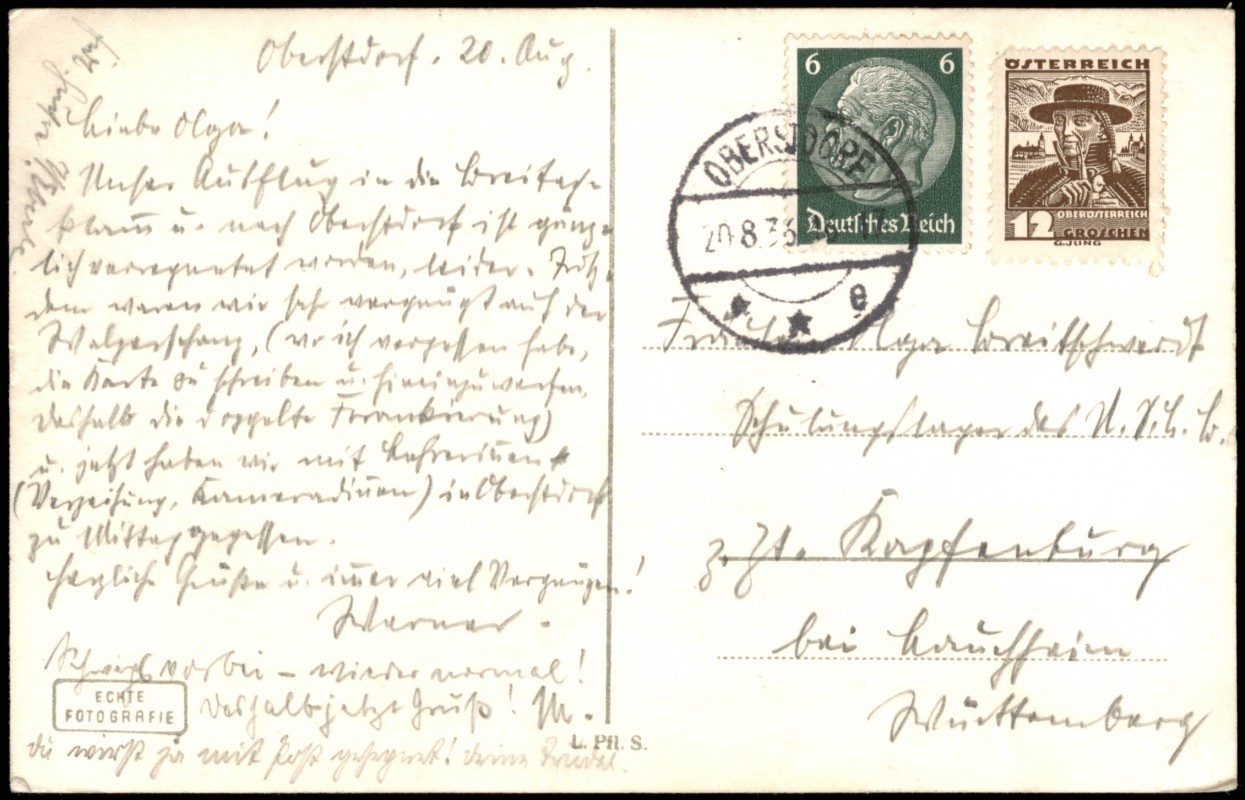 Oberstdorf, 20. Aug.
Liebe Olga!
Unser Ausflug in die Breitach-
klamm u. nach Oberstdorf ist gänz-
lich verregnet worden, leider. Trotz-
dem waren wir sehr vergnügt auf der
Walserschanz, (wo ich vergessen habe,
die Karte zu schreiben u. hineinzuwerfen,
deshalb die doppelte Frankierung)
u. jetzt haben wir mit Lehrerinnen
(Verzeihung, Kameradinnen) in Oberstdorf
zu Mittag gegessen.
Herzliche Grüße u. immer viel Vergnügen!
Werner.
vorbei – wieder normal!
Deshalb jetzt Gruß! M.
du wirst ja mit Post gesegnet! Deine Friedel.
ECHTE
FOTOGRAFIE
L. Pfl. S.
6 6
Deutsches Reich
ÖSTERREICH
OBERÖSTERREICH
12 GROSCHEN
G.JUNG
OBERSTDORF
20.8.36
e
Fräulein Olga Breitschwerdt
Schulungslager des N. S. L. B.
z. Zt. Kapfenburg
bei Lauchheim
Württemberg